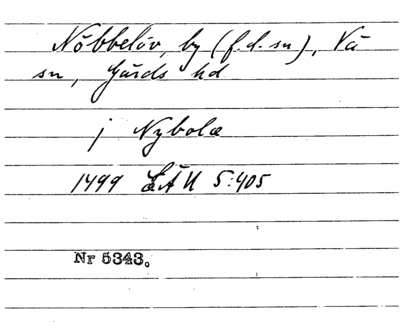 Nöbbelöv, by (f.d. sn), Vä
sn, Gärds hd
j Nybolæ
1499 LÄU 5:405
Nr 5343.